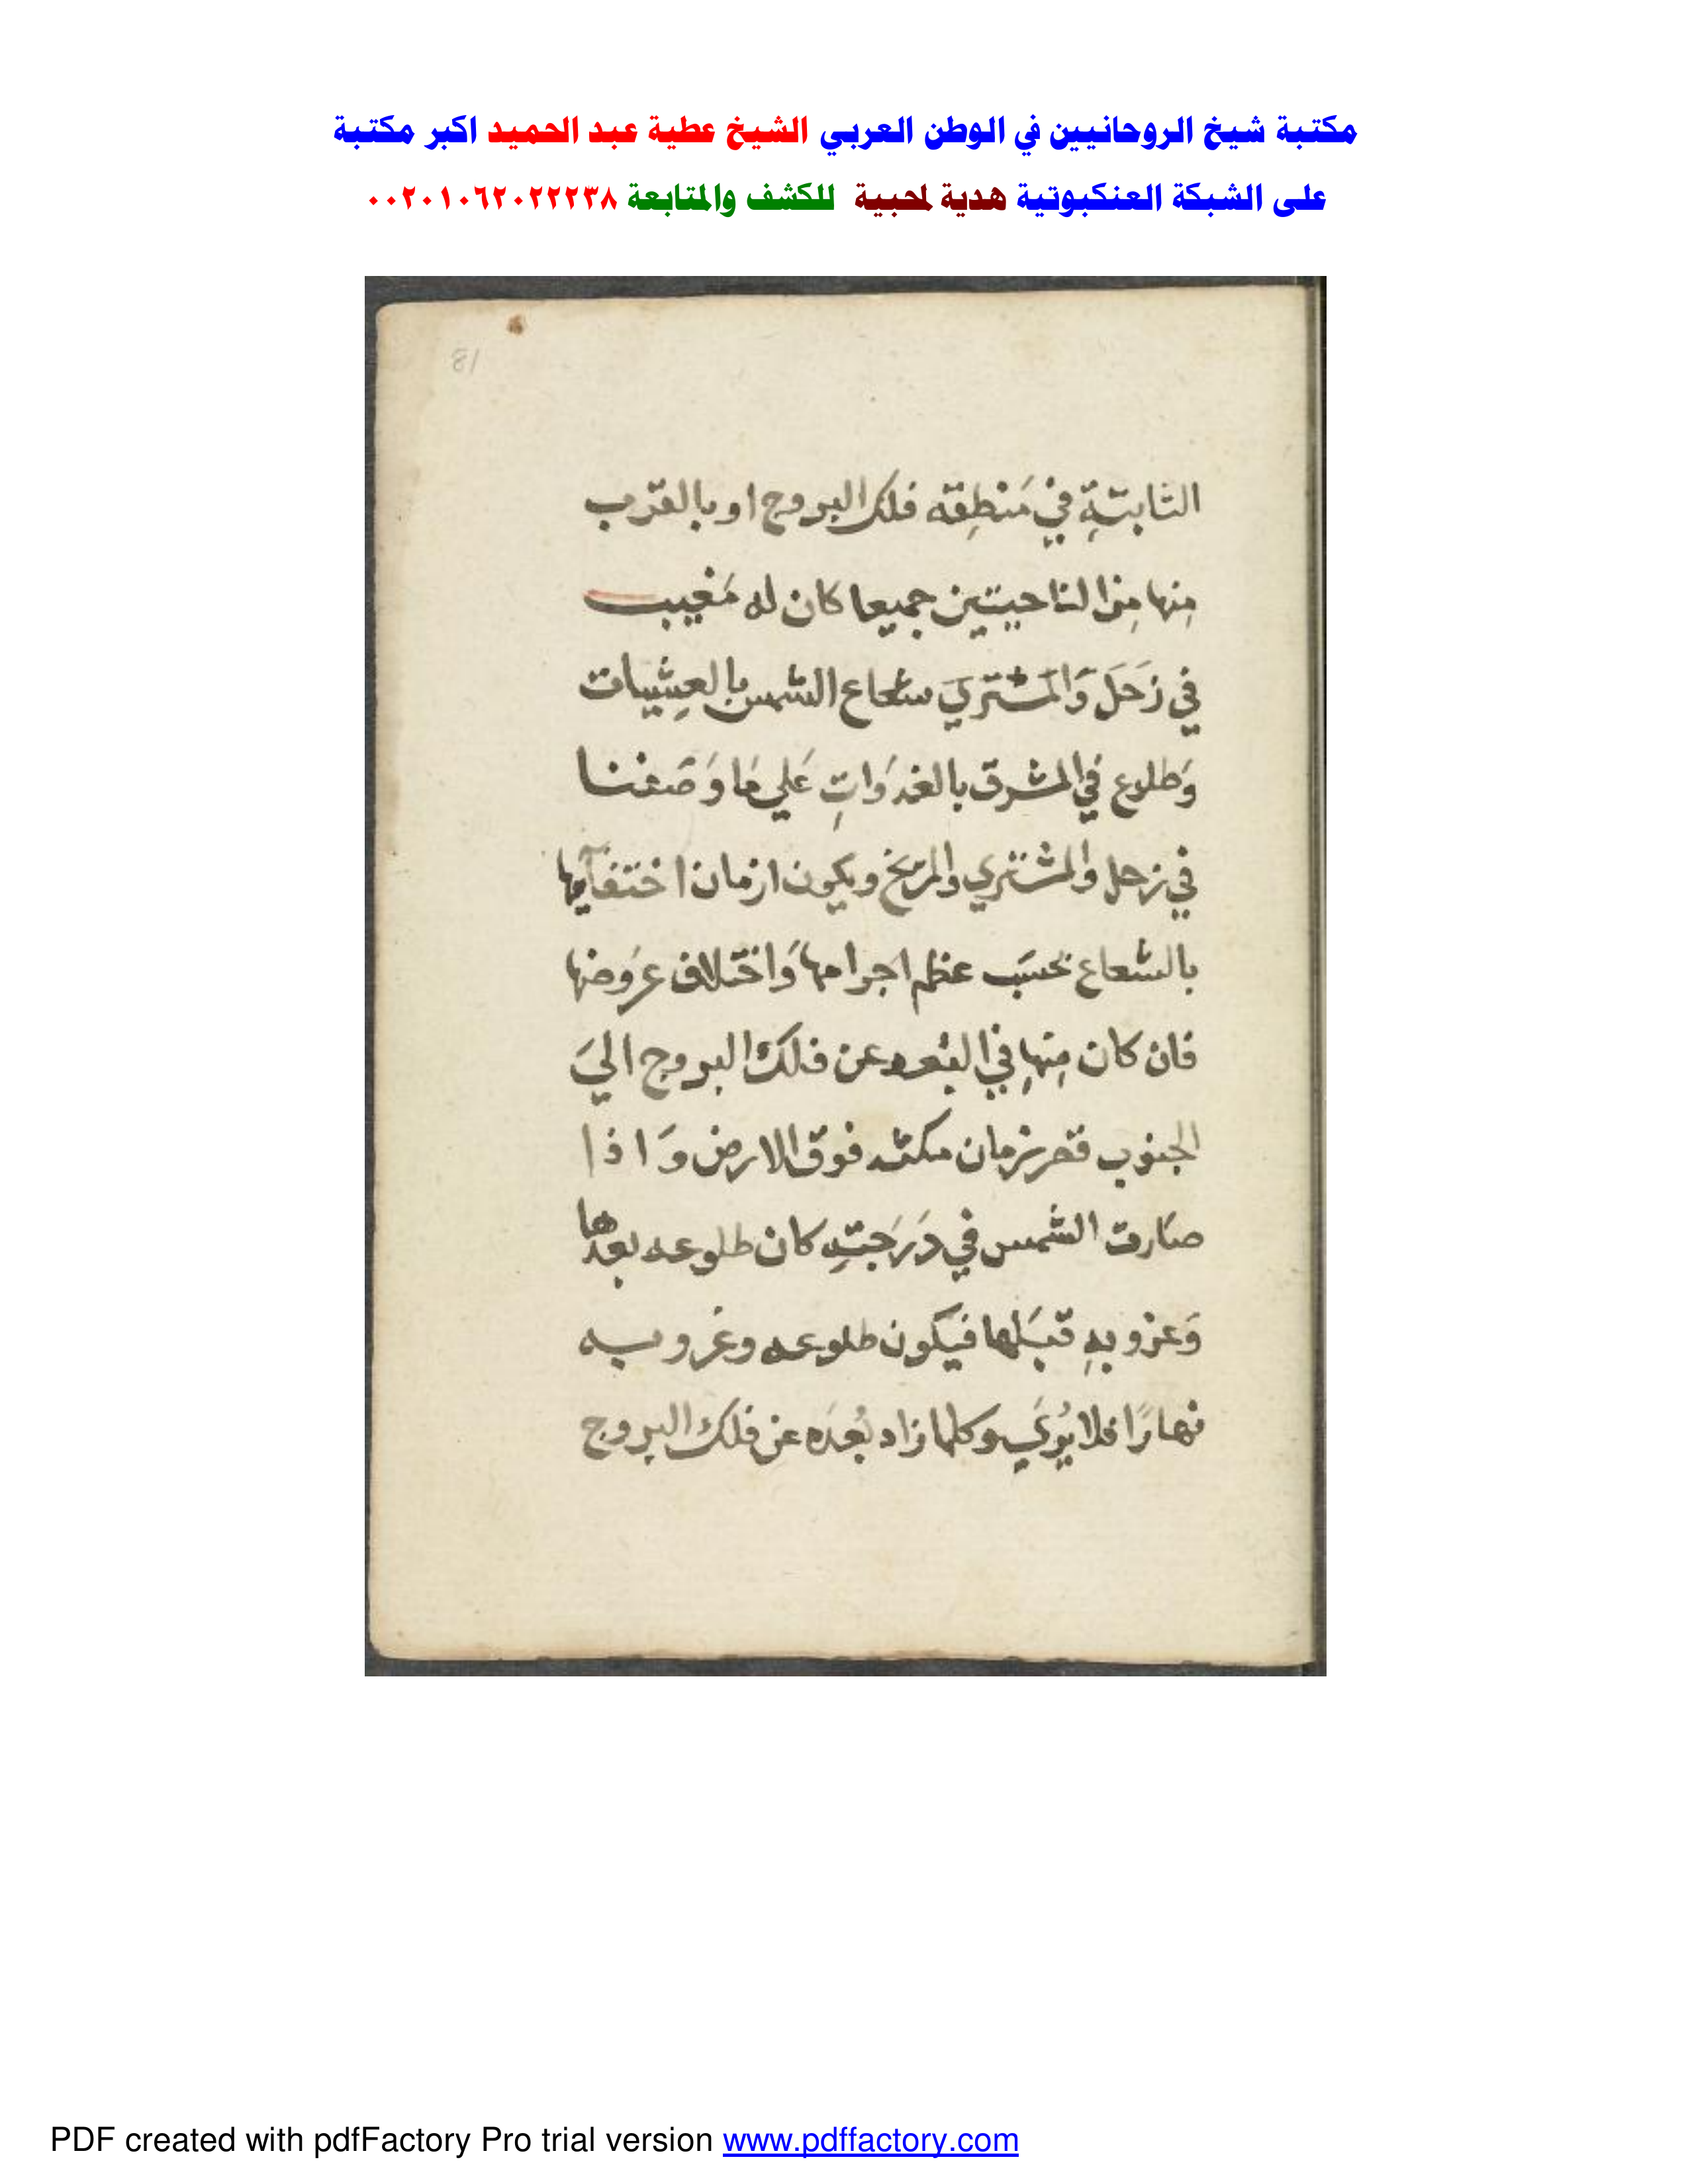 مكتبة شيخ الروحانيين في الوطن العربي الشيخ عطية عبد الحميد اكبر مكتبة
على الشبكة العنكبوتية هدية لمحبية للكشف والمتابعة ٠٠٢٠١٠٦٢٠٢٢٢٣٨
81
الثابتةِ في مَنْطِقة فلك البروج او بالقرب
مِنها مِن الناحيتين جميعا كان له مَغيب
في زَحَل وَالمَشْتَري شعاع الشمس بالعِشيات
وَطلوع في المشرق بالغدَوَاتِ عَلي مَا وَصَفنا
في زحل والمشتري والمريخ ويكون ازمان اختفآيها
بالشعاع بحسَب عظم اجرامها وَاختلاف عرَوضها
فان كان مِنهِا في البُعد عن فلك البروج اليَ
الجنوب قصر زمان مكثه فوق الارض وَاذا
صَارت الشمس في دَرَجَتهِ كان طلوعه بعدها
وَغروبهِ قبَلها فيَكون طلوعه وغروبه
نهارًا فلا يُرَي وكلما زاد بُعدَه عن فلك البروج
PDF created with pdfFactory Pro trial version www.pdffactory.com